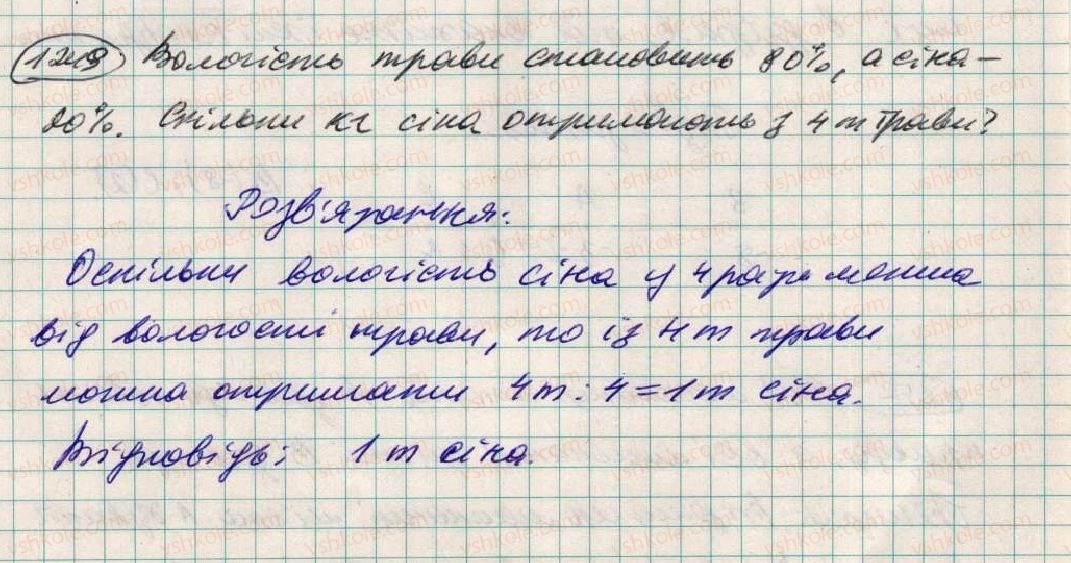 1249 Вологість трави становить 80%, а сіна –
20%. Скільки кг сіна отримають з 4 т трави?
Розв'язання:
Оскільки вологість сіна у 4 рази менша
від вологості трави, то із 4 т трави
можна отримати 4т : 4 = 1т сіна.
Відповідь: 1 т сіна.